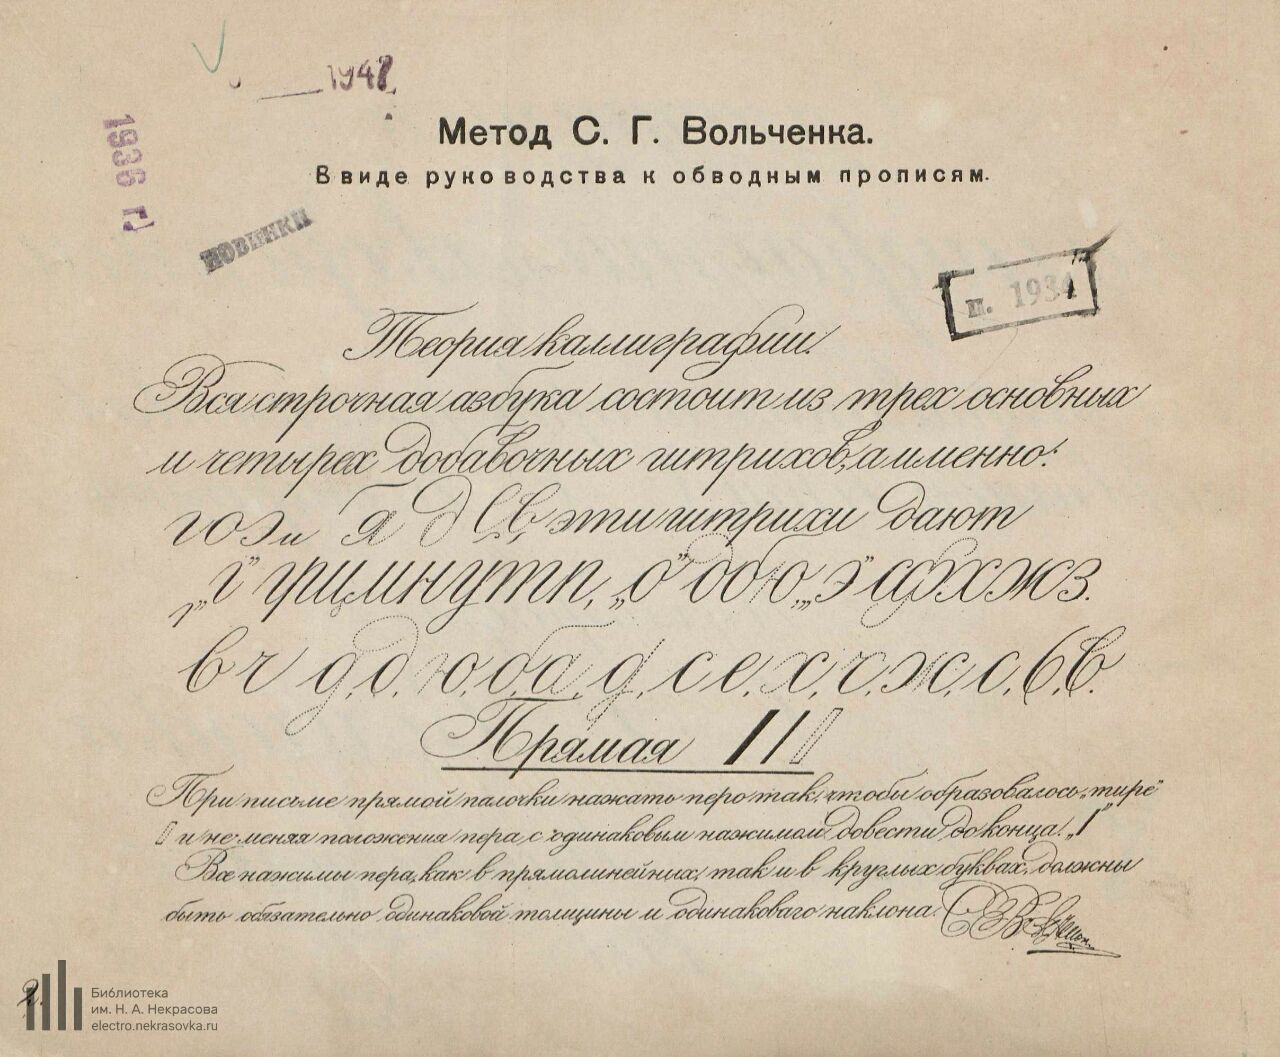 1948
Метод С. Г. Вольченка.
В виде руководства к обводным прописям.
1936 г.
НОВИНКИ
п. 1934
Теория каллиграфии.
Вся строчная азбука состоит из трех основных
и четырех добавочных штрихов, а именно:
г о э и я д с в, эти штрихи дают
г „г” г р и ц м н у т п, „о” д о б ю, „э” а ф х ж з.
в ч д, д. ю. б, а, д, с е. х, ч. ж, с, б, в.
Прямая
При письме прямой палочки нажать перо так, чтобы образовалось „тире”
и не меняя положения пера, с одинаковым нажимом довести до конца! „I”
Все нажимы пера, как в прямолинейных, так и в круглых буквах, должны
быть обязательно одинаковой толщины и одинаковаго наклона. С. Вольченк.
2.
Библиотека
им. Н. А. Некрасова
electro.nekrasovka.ru